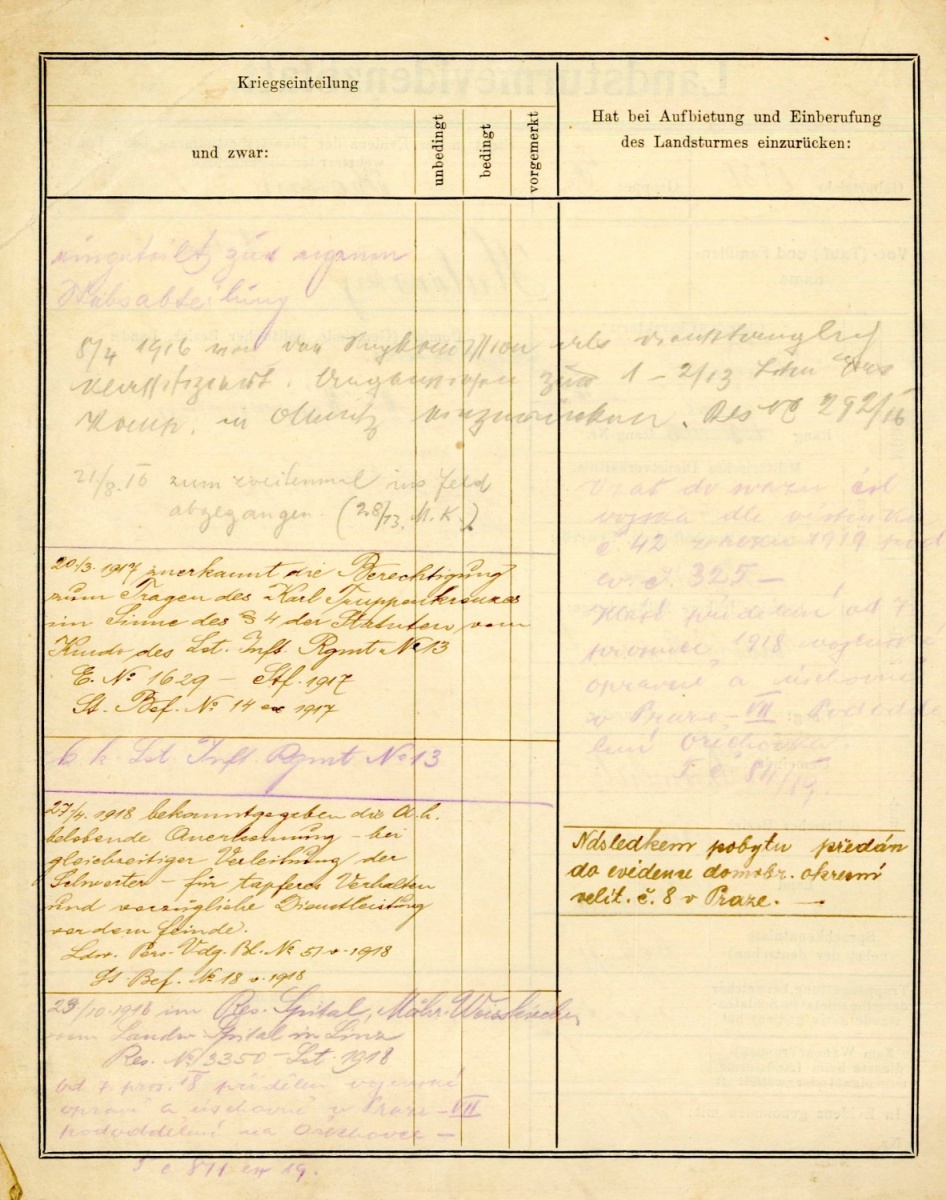 Kriegseinteilung
und zwar:
unbedingt
bedingt
vorgemerkt
Hat bei Aufbietung und Einberufung
des Landsturmes einzurücken:
eingeteilt zur eigenen
Stabsabteilung
8/4 1916 von der als diensttauglich
zum 1 - 2/13 Ers
Komp. in Olmütz einzurücken. Res № 292/16
21/8.16 zum zweitenmal ins Feld
abgegangen. (28/13. M. K.)
20/3. 1917 zuerkannt die Berechtigung
zum Tragen des Karl Truppenkreuzes
im Sinne des § 4 der Statuten vom
Kmdo des Lst. Inft. Rgmt № 13
E. № 1629 – Stf. 1917
St. Bef. № 14 ex 1917
k. k. Lst Inft. Rgmt № 13
27/4. 1918 bekanntgegeben die A. h.
belobende Anerkennung – bei
gleichzeitiger Verleihung der
Schwerter – für tapferes Verhalten
und vorzügliche Dienstleistung
vor dem Feinde.
Ldw. Pers. Vdg. Bl. № 51 v. 1918
St. Bef. № 18 v. 1918
23/10. 1918 im Res. Spital, Mähr. Weisskirchen
vom Landw. Spital in Linz
Res. № 3350 – Lst. 1918
od 7. pros. 18 přidělen vojenské
opravně a úschovně v Praze – VII
pododdělení na Ořechovce –
T č 811 ex 19.
Vzat do svazu čsl
vojska dle
č. 42 z roku 1919 pod
ev. č. 325 –
přidělení od 7
prosince 1918 vojenské
opravně a úschovně
v Praze – VII
Ořechovka.
T. č 811/19.
Následkem pobytu předán
do evidence domobr. okresní
velit. č. 8 v Praze. –